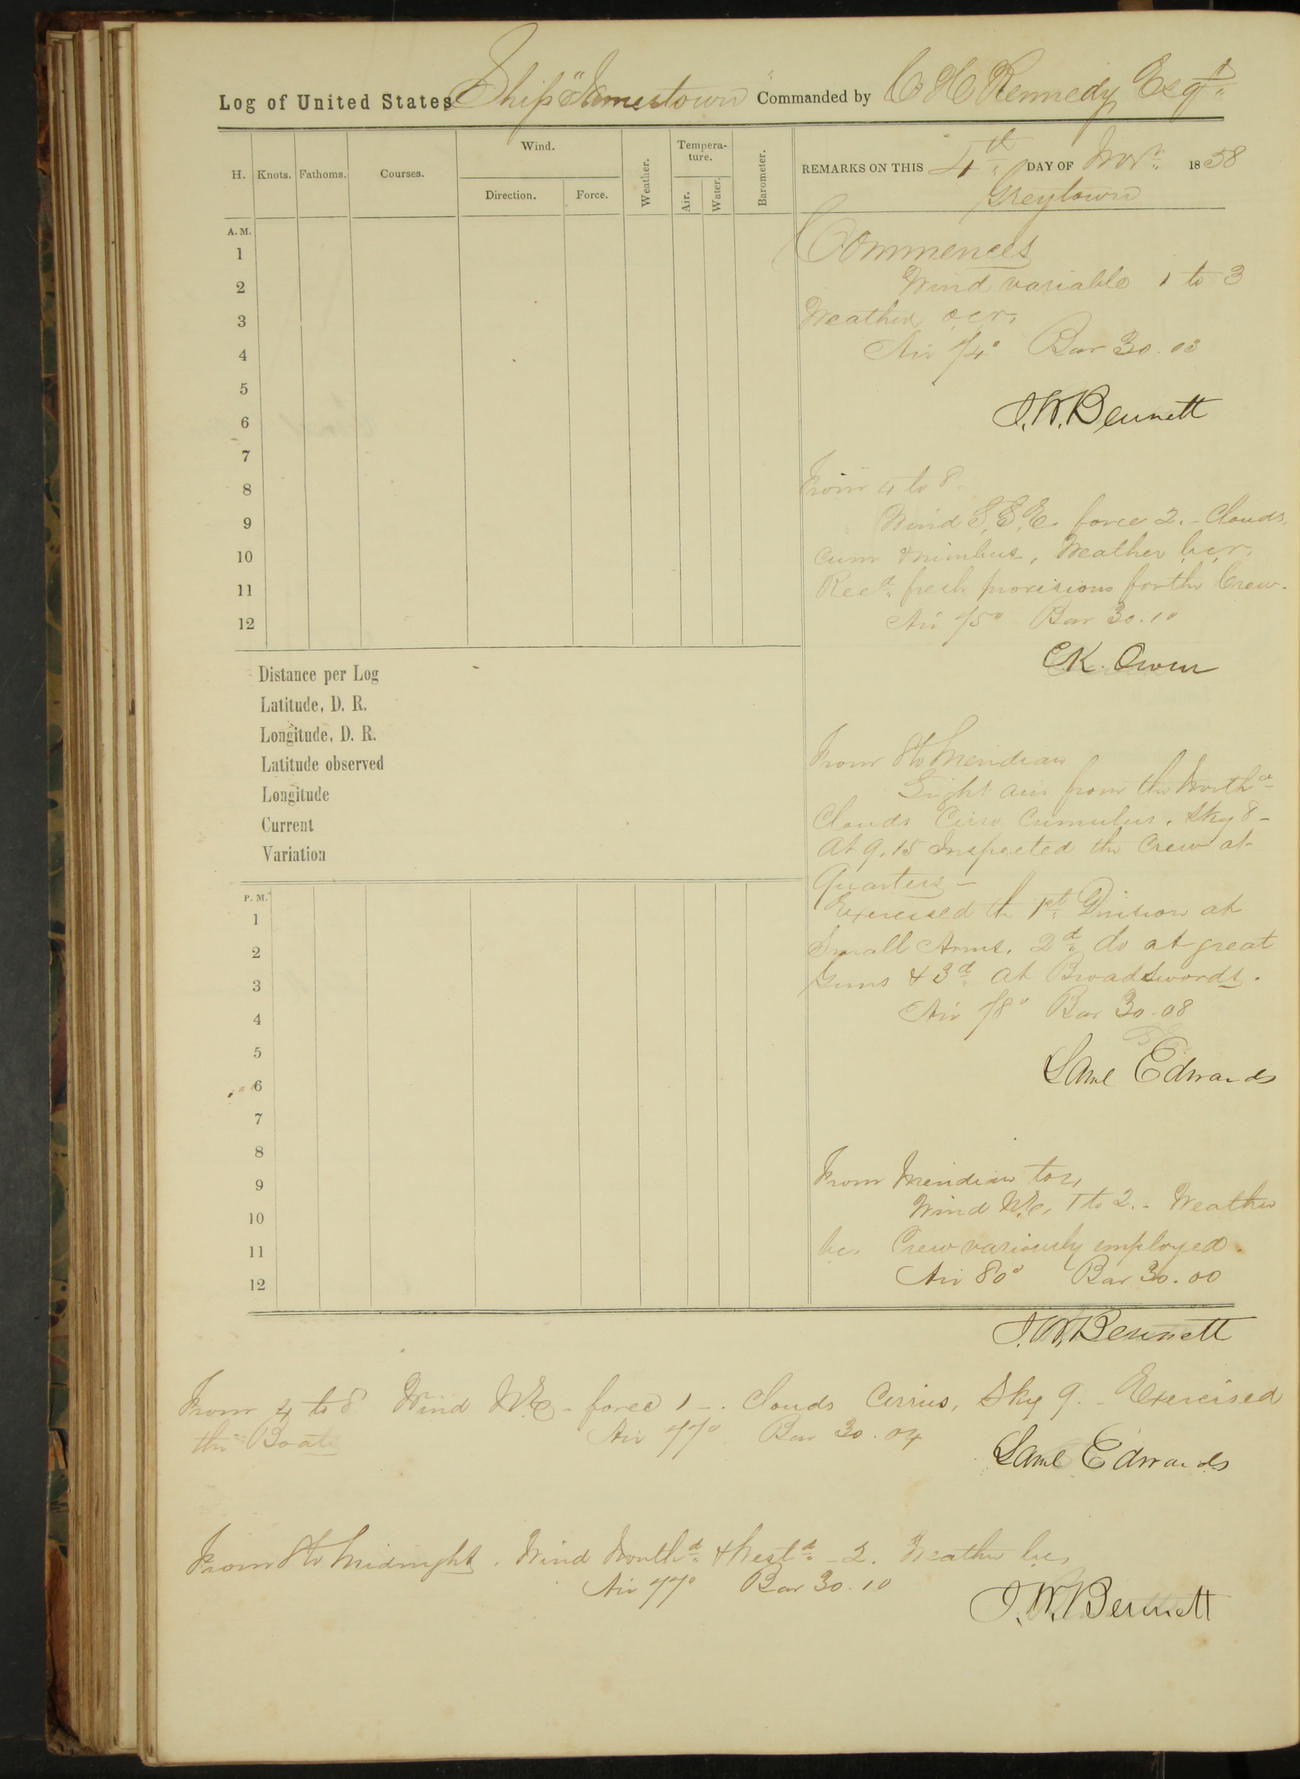 Log of United States Ship "Jamestown" Commanded by C H Kennedy Esqr.
H. Knots. Fathoms. Courses. Wind. Direction. Force. Weather. Tempera-ture. Air. Water. Barometer. REMARKS ON THIS 4th DAY OF Novr. 1858
Greytown
A. M.
1
2
3
4
5
6
7
8
9
10
11
12
Commences
Wind variable 1 to 3
Weather o,c,r,
Air 74° Bar 30.03
J.W. Bennett
From 4 to 8
Wind S,S,E. force 2. - Clouds,
Cum & nimbus, Weather b,c,r,
Recd. fresh provisions for the Crew.
Air 75° Bar 30.10
C.K. Owen
From 8 to Meridian
Light airs from the Northd
Clouds Cirro Cumulus. Sky 8 -
At 9.15 Inspected the Crew at
Quarters -
Exercised the 1st Division at
Small Arms. 2d do at great
Guns & 3d at Broadswords.
Air 78° Bar 30.08
Saml Edwards
Distance per Log
Latitude, D. R.
Longitude, D. R.
Latitude observed
Longitude
Current
Variation
P. M.
1
2
3
4
5
6
7
8
9
10
11
12
From Meridian to 4
Wind N.E, 1 to 2. - Weather
b.c. Crew variously employed.
Air 80° Bar 30.00
J.W. Bennett
From 4 to 8 Wind N.E - force 1 -. Clouds Cirrus, Sky 9. - Exercised
the Boats Air 77° Bar 30.04
Saml Edwards
From 8 to Midnight. Wind Northd & Westd - 2. Weather b.c,
Air 77° Bar 30.10
J.W. Bennett